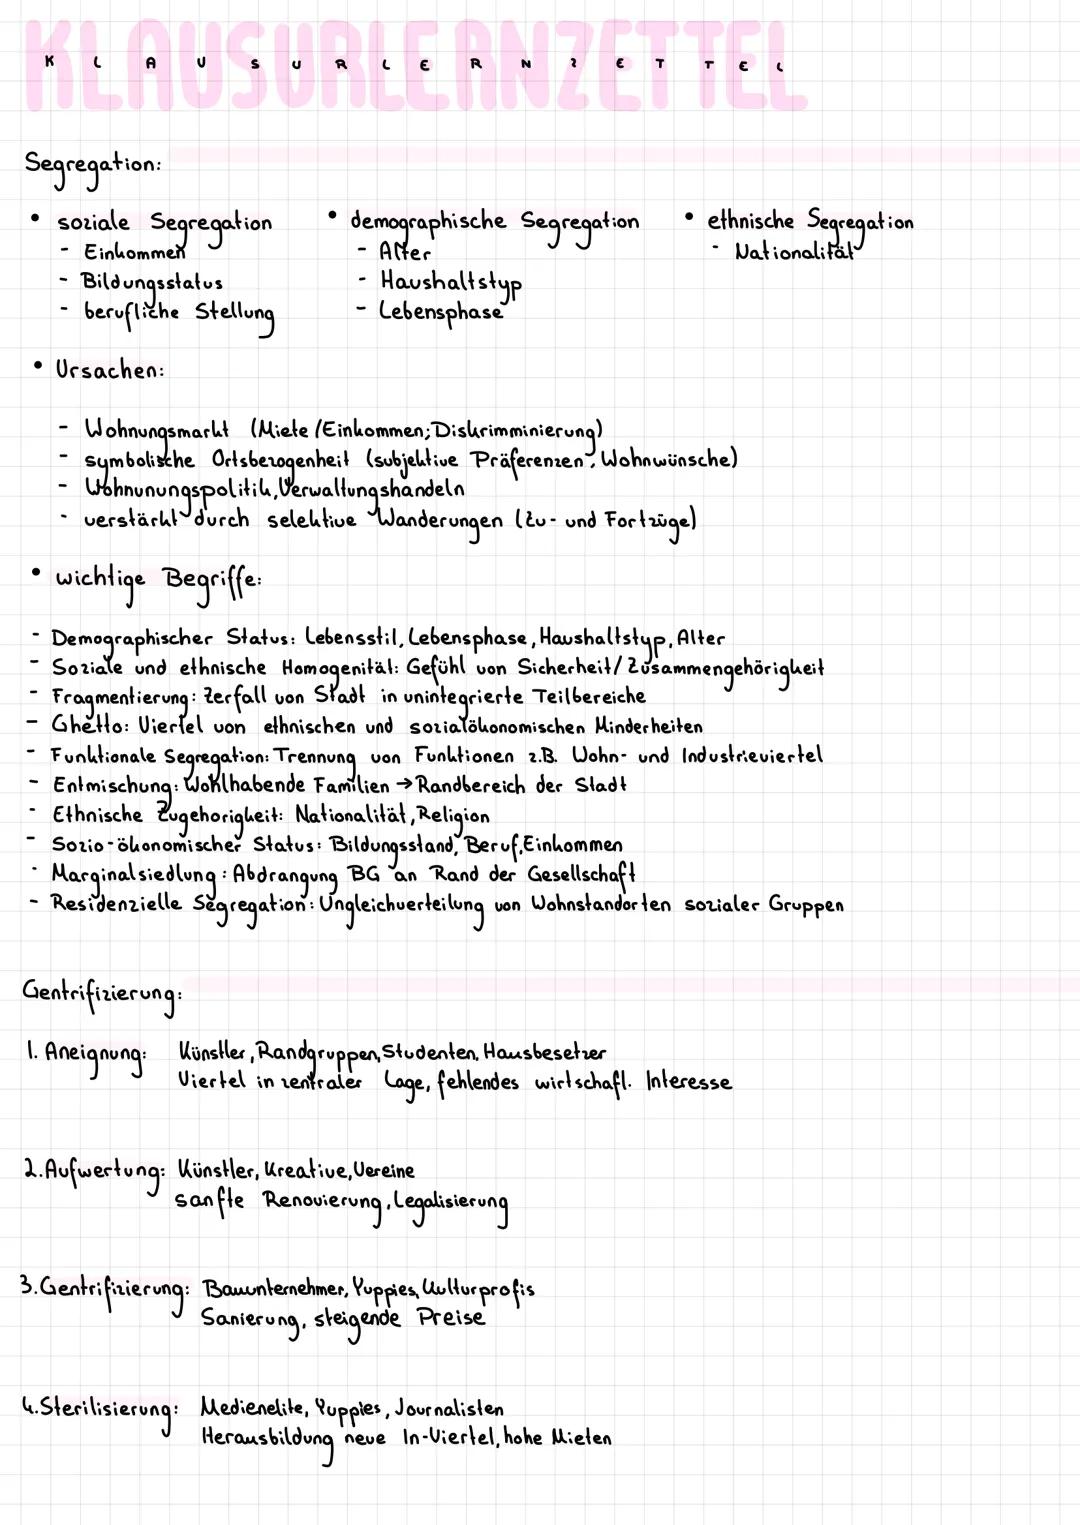 KLAUSURLERNZETTEL
K L A U S U R L E R N Z E T T E L
Segregation:
• soziale Segregation • demographische Segregation • ethnische Segregation
- Einkommen - Alter - Nationalität
- Bildungsstatus - Haushaltstyp
- berufliche Stellung - Lebensphase
• Ursachen:
- Wohnungsmarkt (Miete/Einkommen; Diskrimminierung)
- symbolische Ortsbezogenheit (subjektive Präferenzen, Wohnwünsche)
- Wohnunungspolitik, Verwaltungshandeln
- verstärkt durch selektive Wanderungen (Zu- und Fortzüge)
• wichtige Begriffe:
- Demographischer Status: Lebensstil, Lebensphase, Haushaltstyp, Alter
- Soziale und ethnische Homogenität: Gefühl von Sicherheit/Zusammengehörigkeit
- Fragmentierung: Zerfall von Stadt in unintegrierte Teilbereiche
- Ghetto: Viertel von ethnischen und sozialökonomischen Minderheiten
- Funktionale Segregation: Trennung von Funktionen z.B. Wohn- und Industrieviertel
- Entmischung: Wohlhabende Familien → Randbereich der Stadt
- Ethnische Zugehorigkeit: Nationalität, Religion
- Sozio-ökonomischer Status: Bildungsstand, Beruf, Einkommen
- Marginalsiedlung: Abdrangung BG an Rand der Gesellschaft
- Residenzielle Segregation: Ungleichverteilung von Wohnstandorten sozialer Gruppen
Gentrifizierung:
1. Aneignung: Künstler, Randgruppen, Studenten, Hausbesetzer
Viertel in zentraler Lage, fehlendes wirtschafl. Interesse
2. Aufwertung: Künstler, Kreative, Vereine
sanfte Renovierung, Legalisierung
3. Gentrifizierung: Bauunternehmer, Yuppies, Kulturprofis
Sanierung, steigende Preise
4. Sterilisierung: Medienelite, Yuppies, Journalisten
Herausbildung neue In-Viertel, hohe Mieten